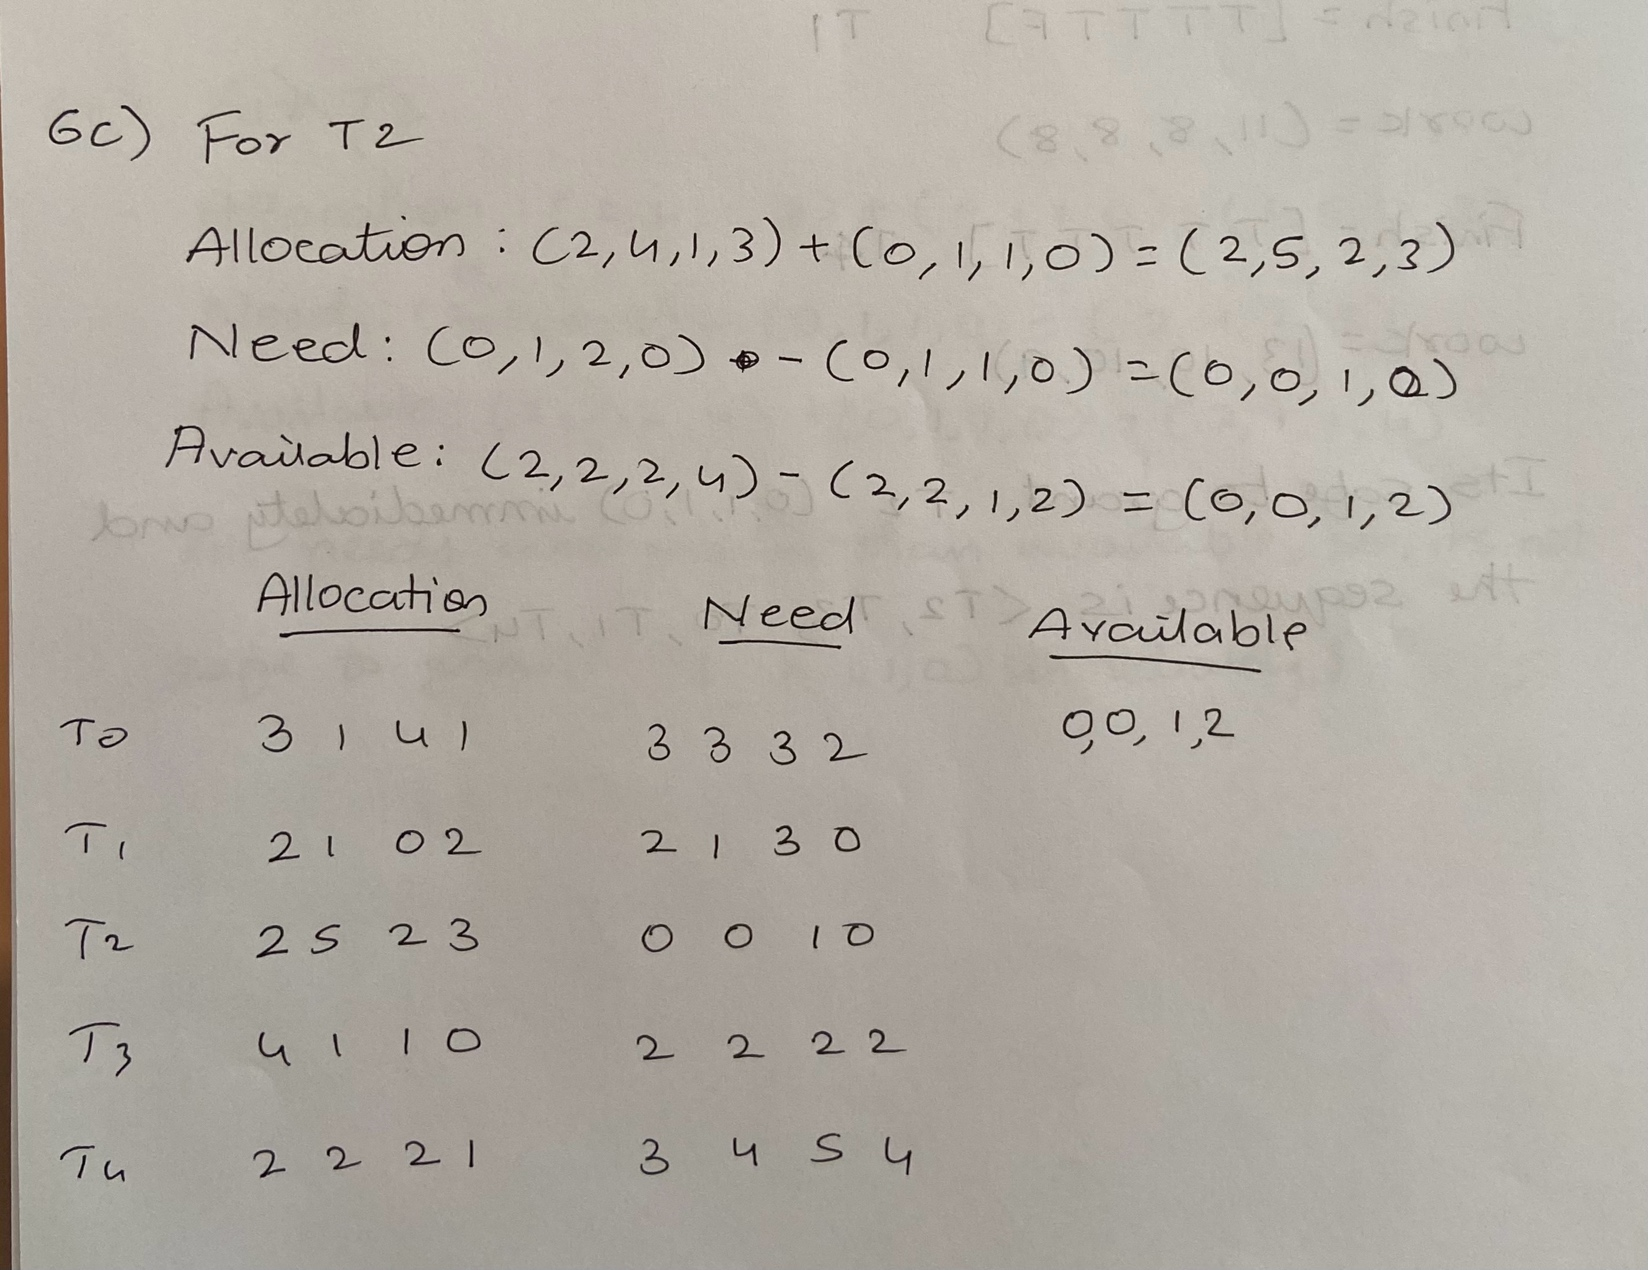 6c) For T2
Allocation : (2,4,1,3) + (0,1,1,0) = (2,5,2,3)
Need: (0,1,2,0) - (0,1,1,0) = (0,0,1,0)
Available: (2,2,2,4) - (2,2,1,2) = (0,0,1,2)
Allocation Need Available
T0 3 1 4 1 3 3 3 2 0,0,1,2
T1 2 1 0 2 2 1 3 0
T2 2 5 2 3 0 0 1 0
T3 4 1 1 0 2 2 2 2
T4 2 2 2 1 3 4 5 4